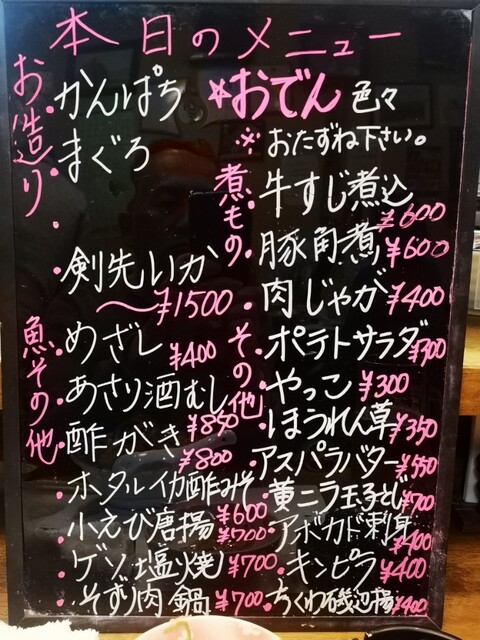 本日のメニュー
お造り
・かんぱち
・まぐろ
・剣先いか
〜¥1500
魚その他
・めざし ¥400
・あさり酒むし ¥850
・酢がき ¥800
・ホタルイカ酢みそ ¥600
・小えび唐揚 ¥700
・ゲソ塩焼 ¥700
・そずり肉鍋 ¥700
☆おでん 色々
※おたずね下さい。
煮もの
・牛すじ煮込 ¥600
・豚角煮 ¥600
・肉じゃが ¥400
その他
・ポテトサラダ ¥300
・やっこ ¥300
・ほうれん草 ¥350
・アスパラバター ¥550
・黄ニラ玉子とじ ¥700
・アボカド刺身 ¥400
・キンピラ ¥400
・ちくわ磯辺揚 ¥400